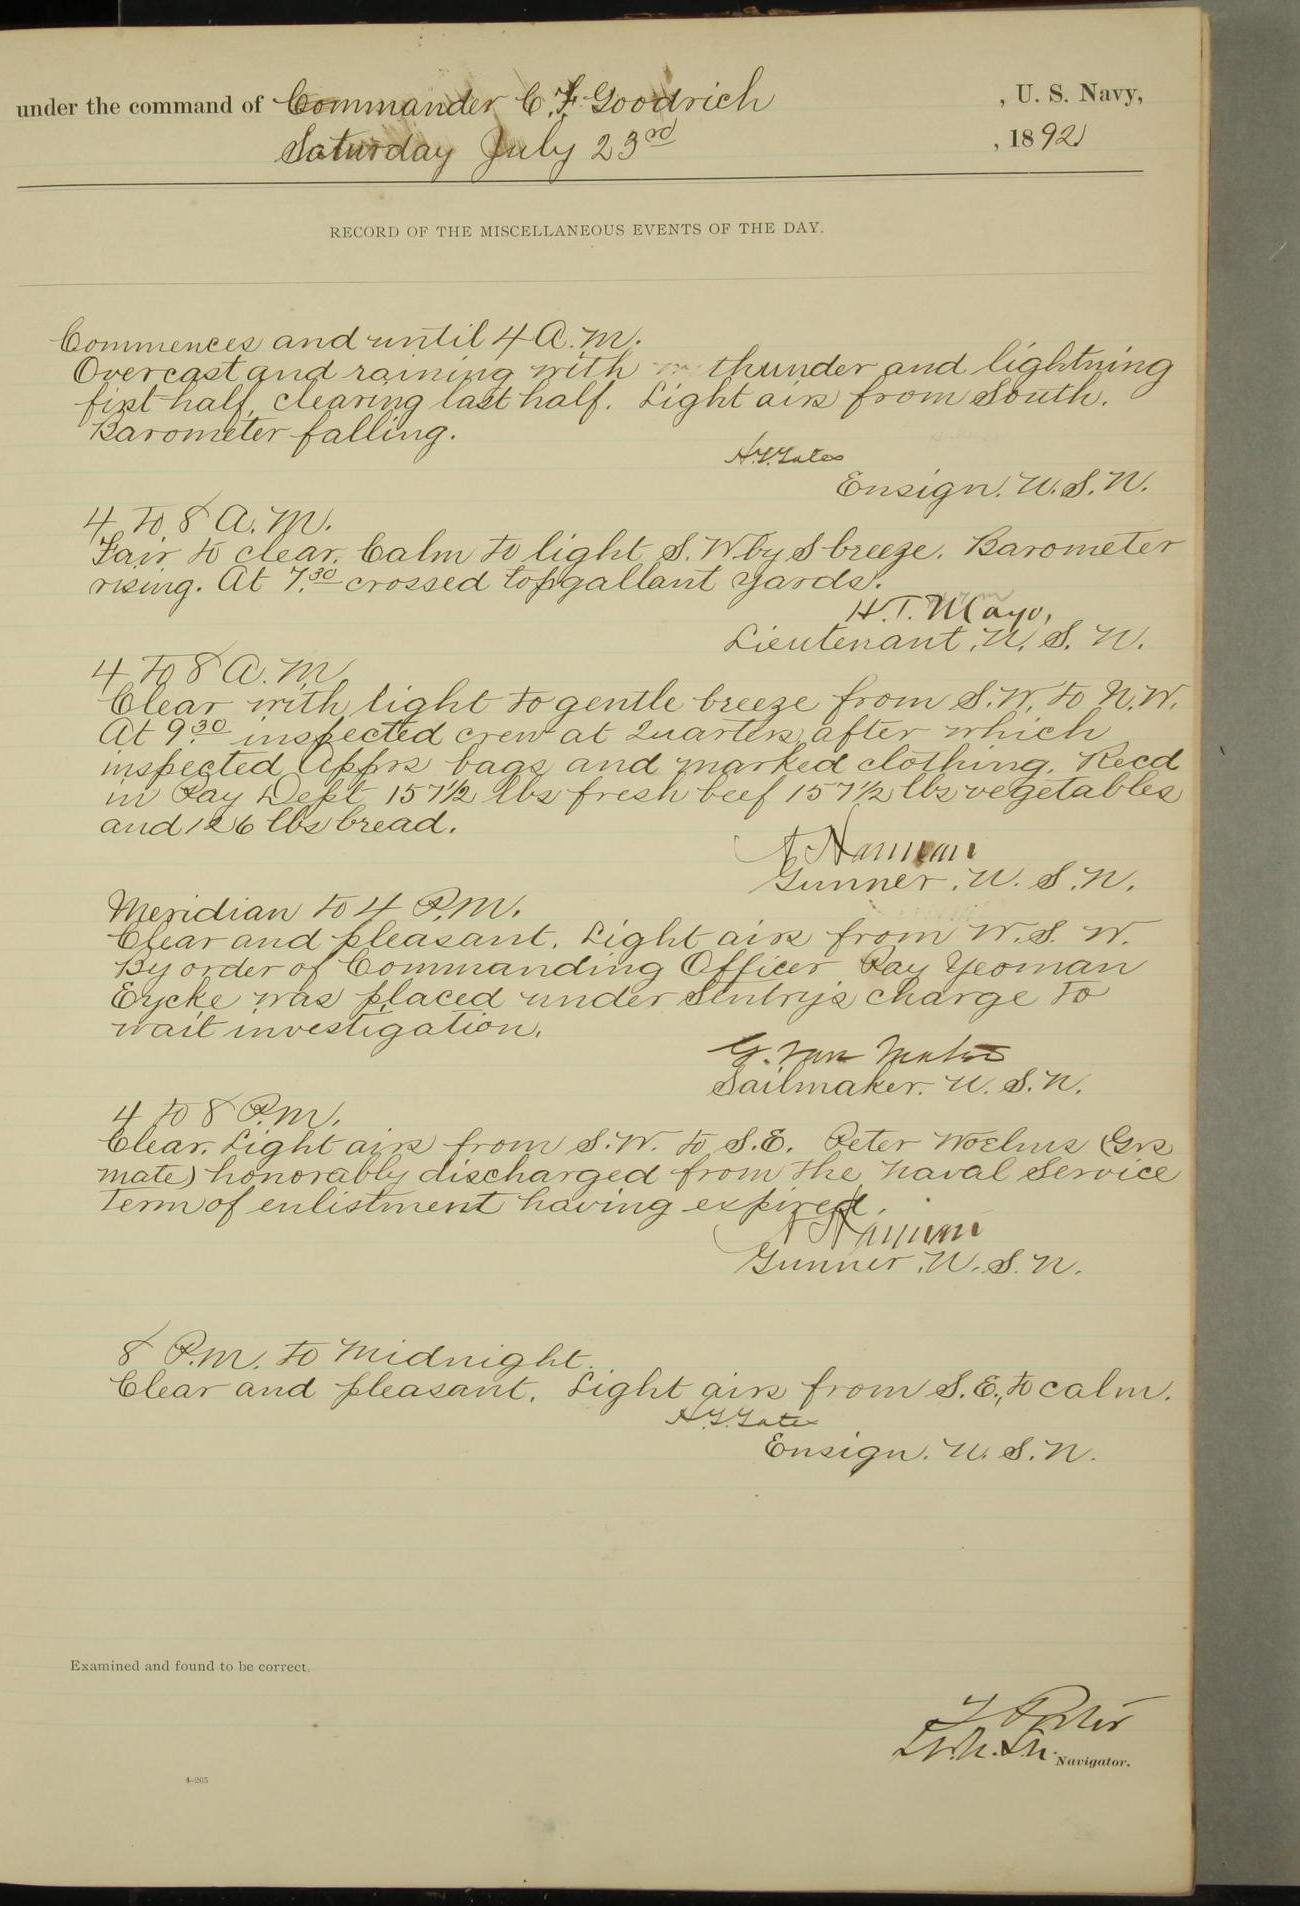 under the command of Commander C. F. Goodrich, U. S. Navy,
Saturday July 23rd, 1892
RECORD OF THE MISCELLANEOUS EVENTS OF THE DAY.
Commences and until 4 A.M.
Overcast and raining with thunder and lightning
first half, clearing last half. Light airs from South.
Barometer falling.
Ensign. U. S. N.
4 to 8 A.M.
Fair to clear. Calm to light S. W by S breeze. Barometer
rising. At 7.30 crossed topgallant yards.
H. T. Mayo,
Lieutenant, U. S. N.
4 to 8 A.M.
Clear with light to gentle breeze from S.W. to N.W.
At 9.30 inspected crew at Quarters, after which
inspected Apprs bags and marked clothing. Recd
in Pay Dept 157½ lbs fresh beef 157½ lbs vegetables
and 126 lbs bread.
Gunner, U. S. N.
Meridian to 4 P.M.
Clear and pleasant. Light airs from W. S. W.
By order of Commanding Officer Pay Yeoman
Eycke was placed under Sentry's charge to
wait investigation.
G. Van
Sailmaker. U. S. N.
4 to 8 P.M.
Clear. Light airs from S.W. to S.E. Peter Woelms (Grs
mate) honorably discharged from the Naval Service
term of enlistment having expired.
Gunner, U. S. N.
8 P.M. to Midnight.
Clear and pleasant. Light airs from S.E., to calm.
Ensign. U. S. N.
Examined and found to be correct.
Navigator.
4—265